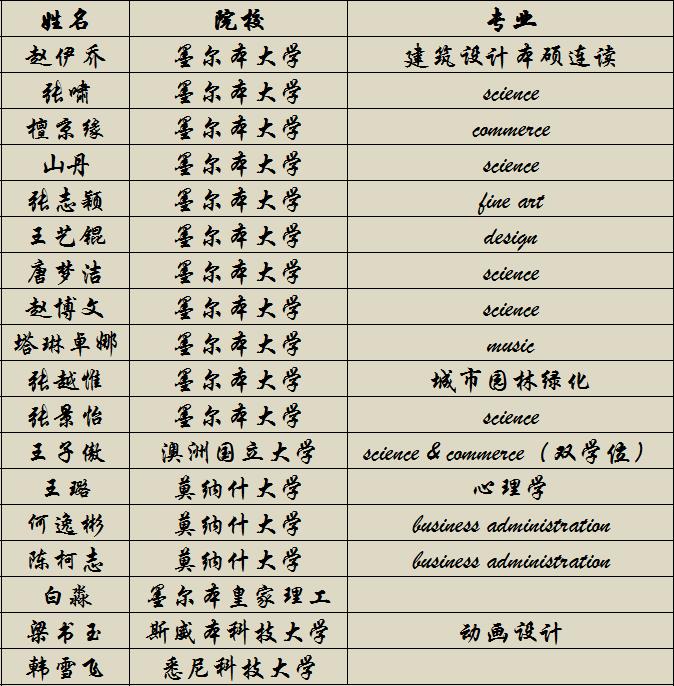 姓名 院校 专业
赵伊乔 墨尔本大学 建筑设计本硕连读
张啸 墨尔本大学 science
檀京缘 墨尔本大学 commerce
山丹 墨尔本大学 science
张志颖 墨尔本大学 fine art
王艺锟 墨尔本大学 design
唐梦洁 墨尔本大学 science
赵博文 墨尔本大学 science
塔琳卓娜 墨尔本大学 music
张越惟 墨尔本大学 城市园林绿化
张景怡 墨尔本大学 science
王子傲 澳洲国立大学 science & commerce（双学位）
王璐 莫纳什大学 心理学
何逸彬 莫纳什大学 business administration
陈柯志 莫纳什大学 business administration
白淼 墨尔本皇家理工
梁书玉 斯威本科技大学 动画设计
韩雪飞 悉尼科技大学